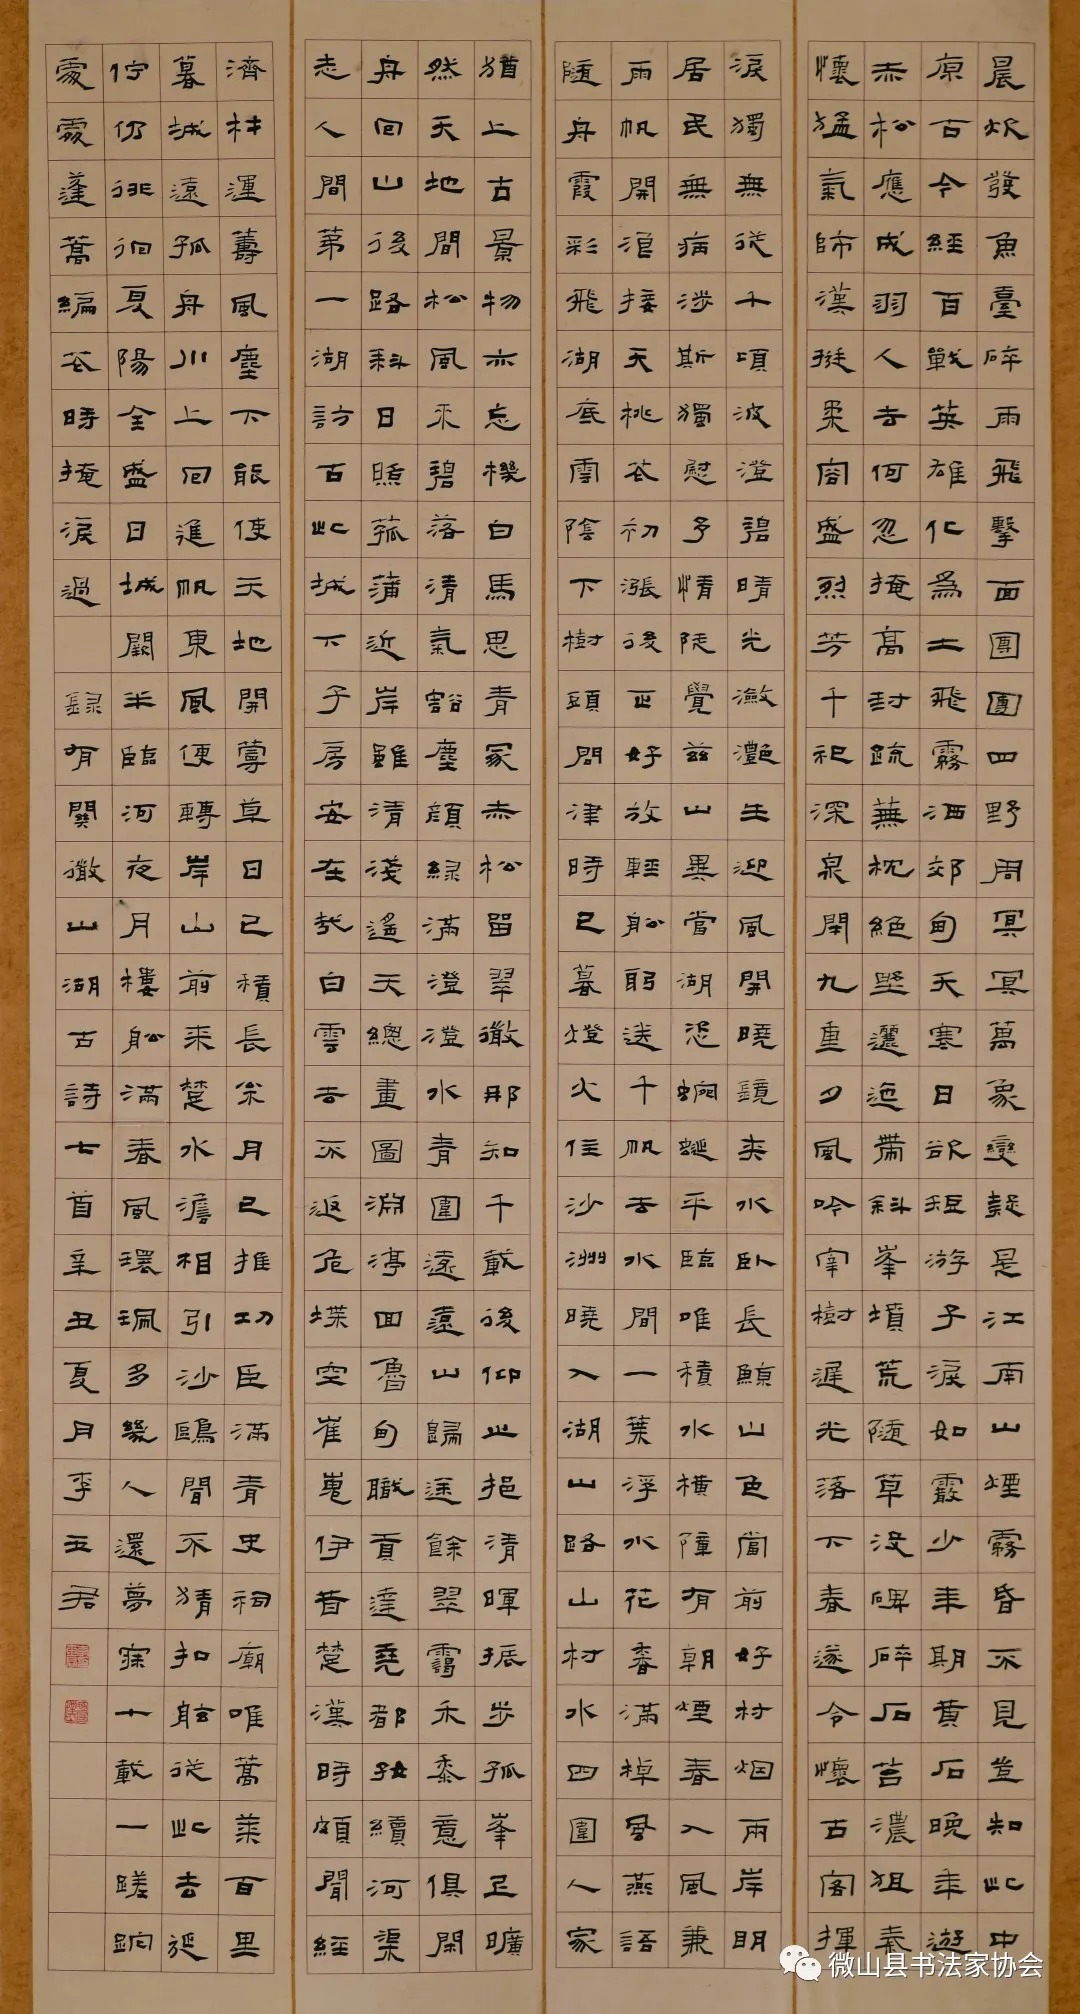 晨炊發魚臺碎雨飛擊面團團四野周冥冥萬象變疑是江南山煙霧昏不見豈知此中
原古今經百戰英雄化為土飛霧洒郊甸天寒日欲短游子淚如霰少年期黃石晚年游
赤松應成羽人去何忽掩高封疏蕪枕絕壑邐迤帶斜峯墳荒隨草沒碑碎石苔濃狙秦
懷猛氣師漢挺柔容盛烈芳千祀深泉閉九重夕風吟宰樹遲光落下舂遂令懷古客揮
淚獨無從千頃波澄碧晴光瀲灩生迎風開曉鏡夾水臥長鯨山色當前好村烟兩岸明
居民無病涉斯獨慰予情陡覺茲山異當湖恐蜿蜒平臨唯積水橫障有朝煙春入風兼
雨帆開浪接天桃花初漲後正好放輕船躬送千帆去水間一葉浮水花春滿棹風燕語
隨舟霞彩飛湖底雲陰下樹頭問津時已暮燈火住沙洲曉入湖山路山村水四圍人家
猶上古景物亦忘機白馬思青冢赤松留翠微那知千載後仰止挹清暉振步孤峯上曠
然天地間松風來碧落清氣豁塵顏綠滿澄澄水青圍遠遠山歸途餘翠靄禾黍意俱閑
舟回山後路斜日照菰蒲近岸雖清淺遙天總畫圖淵渟回魯甸職貢達堯都孜續河渠
志人間第一湖訪古此城下子房安在哉白雲去不返危堞空崔嵬伊昔楚漢時頗聞經
濟材運籌風塵下能使天地開蔓草日已積長松月已摧功臣滿青史祠廟唯蒿萊百里
暮城遠孤舟川上回進帆東風便轉岸山前來楚水澹相引沙鷗閒不猜扣舷從此去延
佇仍徘徊夏陽全盛日城闕半臨河夜月樓船滿春風環珮多幾人還夢寐十載一蹉跎
處處蓬蒿編花時掩淚過 錄有關微山湖古詩七首辛丑夏月李五君
微山县书法家协会